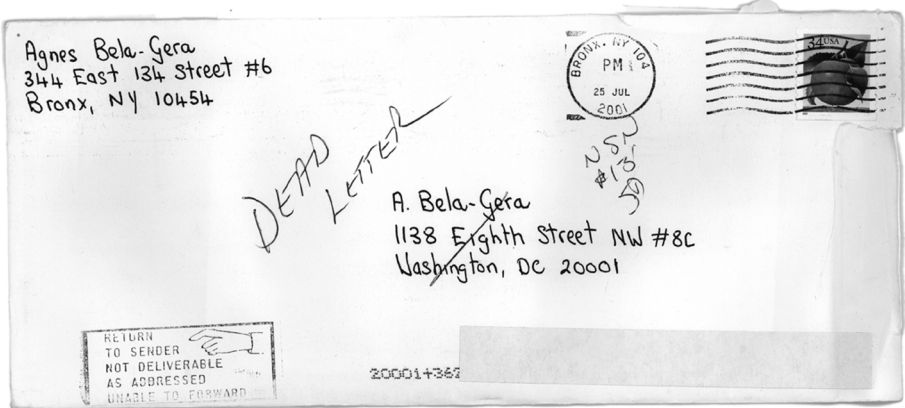 Agnes Bela-Gera
344 East 134 Street #6
Bronx, NY 10454
BRONX, NY 104
PM
25 JUL
2001
34 USA
DEAD
LETTER
NSN
A. Bela-Gera
1138 Eighth Street NW #8C
Washington, DC 20001
RETURN
TO SENDER
NOT DELIVERABLE
AS ADDRESSED
UNABLE TO FORWARD
20001+362